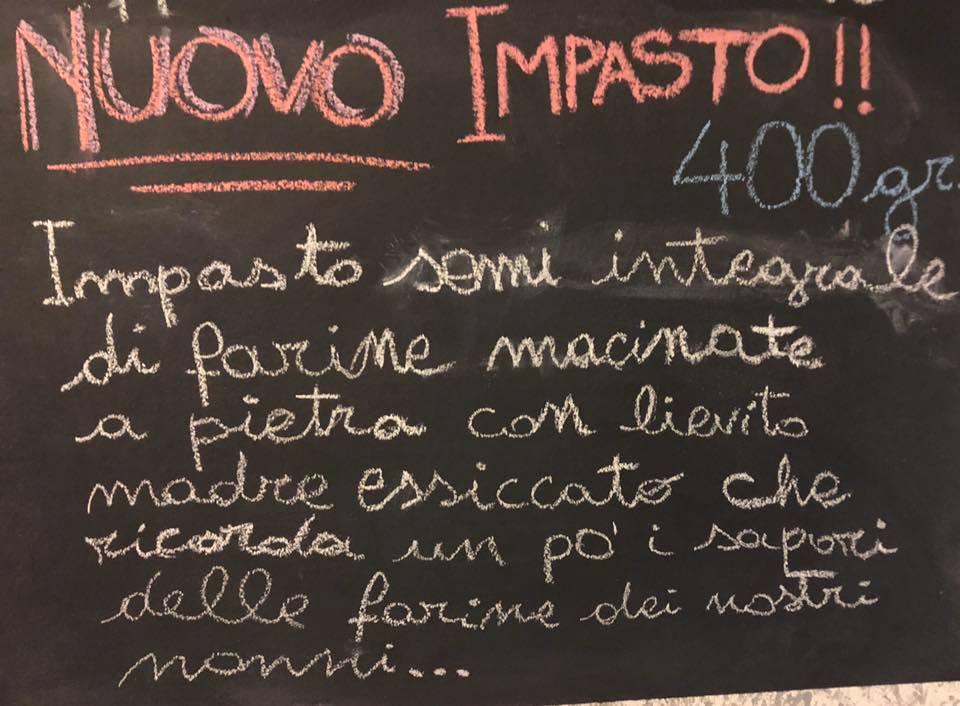 NUOVO IMPASTO!!
400 gr.
Impasto semi integrale
di farine macinate
a pietra con lievito
madre essiccato che
ricorda un po' i sapori
delle farine dei nostri
nonni...